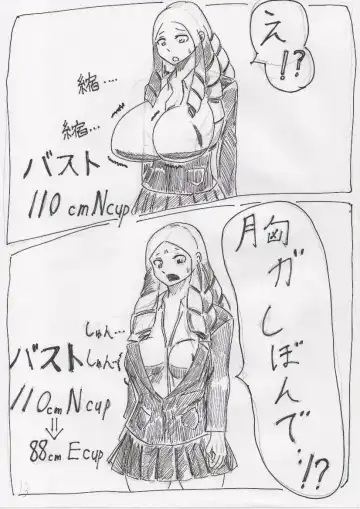 え!?
縮‥‥
縮…
バスト
110cmNcup
胸が
しぼんで…!?
しゅん…
しゅんっ
バスト
110cmNcup
⇓
88cm Ecup